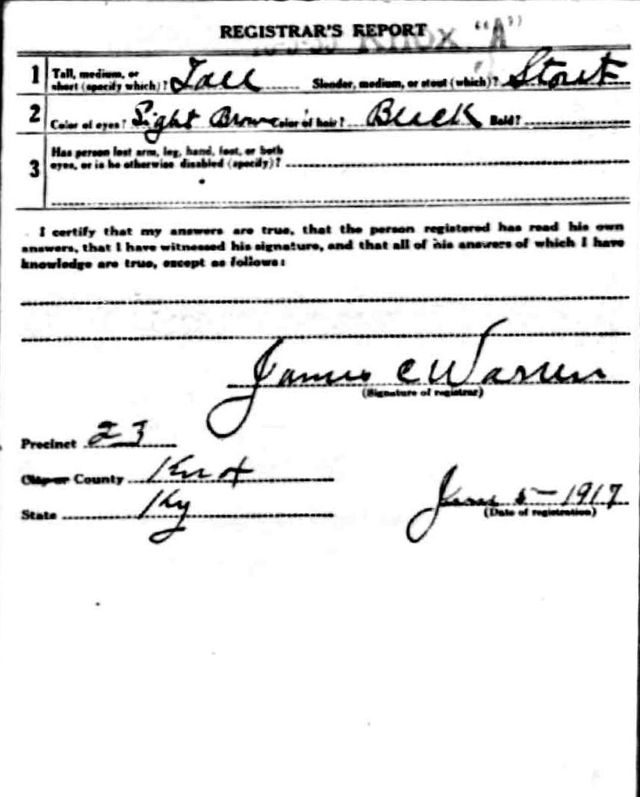 REGISTRAR'S REPORT
KNOX "A"
1 Tall, medium, or short (specify which)? Tall Slender, medium, or stout (which)? Stout
2 Color of eyes? Light Brown Color of hair? Black Bald?
3 Has person lost arm, leg, hand, foot, or both
eyes, or is he otherwise disabled (specify)?
I certify that my answers are true, that the person registered has read his own
answers, that I have witnessed his signature, and that all of his answers of which I have
knowledge are true, except as follows:
James C Warren
(Signature of registrar)
Precinct 23
City or County Knox
State Ky
June 5 - 1917
(Date of registration)